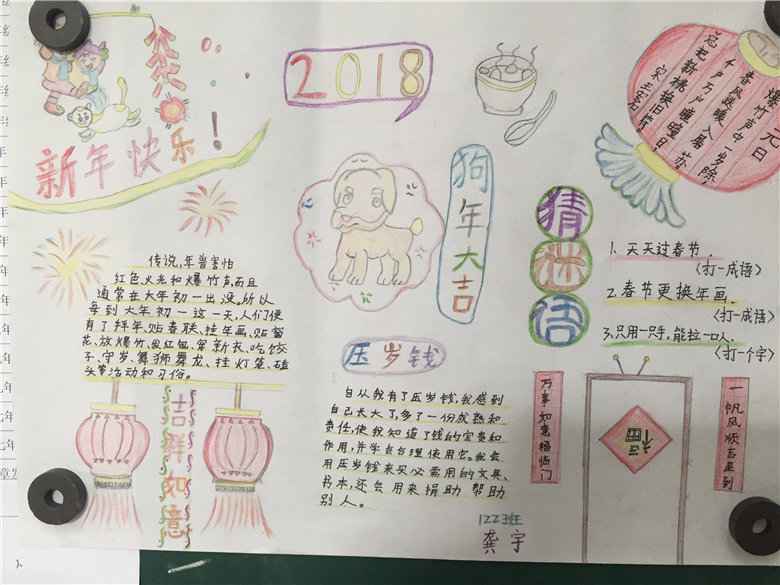 新年快乐!
2018
狗年大吉
元日
爆竹声中一岁除,
春风送暖入屠苏
千户万户曈曈日
总把新桃换旧符!
宋 王安石
传说,年兽害怕
红色、火光和爆竹声,而且
通常在大年初一出没,所以
每到大年初一这一天,人们便
有了拜年、贴春联、挂年画、贴窗
花、放爆竹、发红包、穿新衣、吃饺
子、守岁、舞狮舞龙、挂灯笼、磕
头等活动和习俗。
吉祥如意
压岁钱
自从我有了压岁钱,我感到
自己长大了,多了一份成熟和
责任,使我知道了钱的宝贵和
作用,并学会合理使用它。我会
用压岁钱来买必需用的文具、
书本,还会用来捐助帮助
别人。
122班
龚宇
猜谜语
1、天天过春节.
(打一成语)
2、春节更换年画.
(打一成语)
3、只用一只手,能拉一口人.
(打一个字)
万事如意福临门
福
一帆风顺吉星到